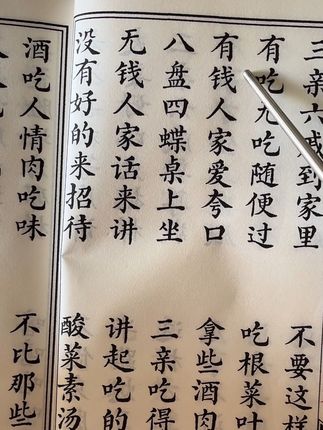 三亲六戚到家里
有吃无吃随便过
有钱人家爱夸口
八盘四蝶桌上坐
无钱人家话来讲
没有好的来招待
不要这样
吃根菜叶
拿些酒肉
三亲吃得
讲起吃的
酸菜素汤
酒吃人情肉吃味
不比那些